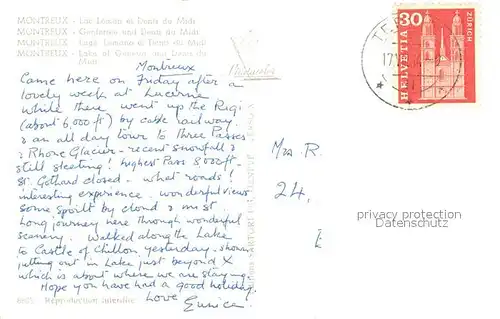 MONTREUX - Lac Léman et Dents du Midi
MONTREUX - Genfersee und Dent du Midi
MONTREUX - Lago Lemano e Denti du Midi
MONTREUX - Lake of Geneva and Dents du
Midi
Montreux
Came here on Friday after a
lovely week at Lucerne
while there went up the Rigi
(about 6,000 ft) by cable railway.
& an all day tour to three Passes
& Rhone Glacier - recent snowfall &
still sleeting! highest Pass 8000ft -
St. Gothard closed - what roads!
interesting experience. wonderful views
some spoilt by cloud & mist
Long journey here through wonderful
scenery. Walked along the Lake
to Castle of Chillon yesterday - shown
jutting out in Lake just beyond X
which is about where we are staying.
Hope you have had a good holiday.
Love
Eunice.
Reproduction interdite
30
HELVETIA
ZÜRICH
Mrs R.
24,
E
privacy protection
Datenschutz